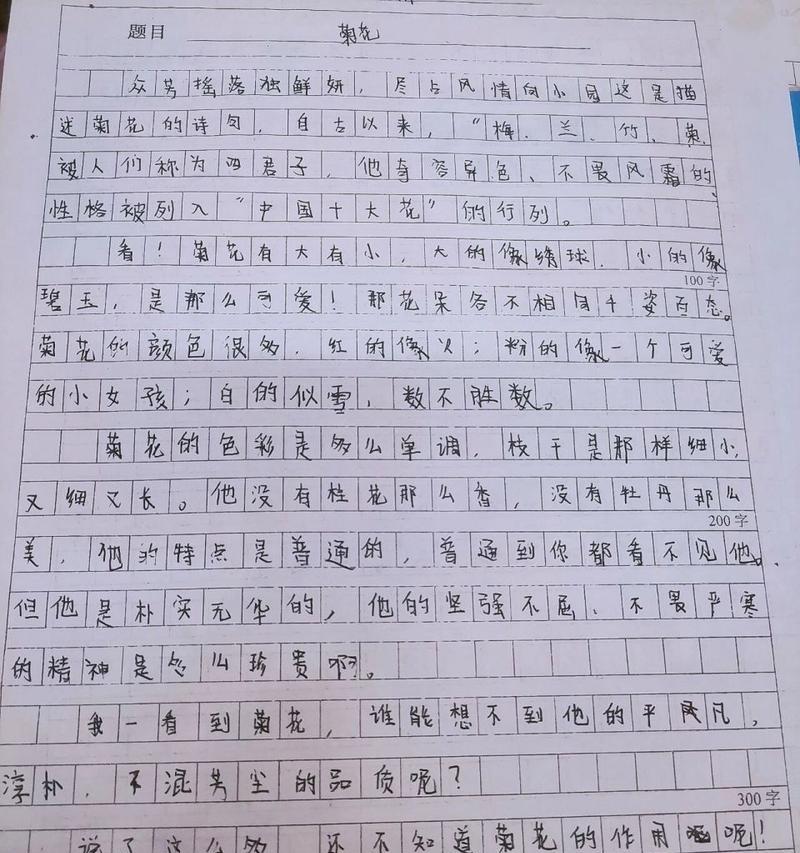 题目 菊花
众芳摇落独鲜妍，尽占风情向小园这是描
述菊花的诗句，自古以来，“梅、兰、竹、菊，
被人们称为四君子，他奇容异色、不畏风霜的
性格被列入“中国十大花”的行列。
看！菊花有大有小，大的像绣球，小的像
100字
碧玉，是那么可爱！那花朵各不相同千姿百态。
菊花的颜色很多，红的像火；粉的像一个可爱
的小女孩；白的似雪，数不胜数。
菊花的色彩是多么单调，枝干是那样细小，
又细又长。他没有桂花那么香，没有牡丹那么
200字
美，他的特点是普通的，普通到你都看不见他。
但他是朴实无华的，他的坚强不屈、不畏严寒
的精神是多么珍贵啊。
我一看到菊花，谁能想不到他的平凡，
淳朴，不混芳尘的品质呢？
300字
说了这么多，还不知道菊花的作用呢！